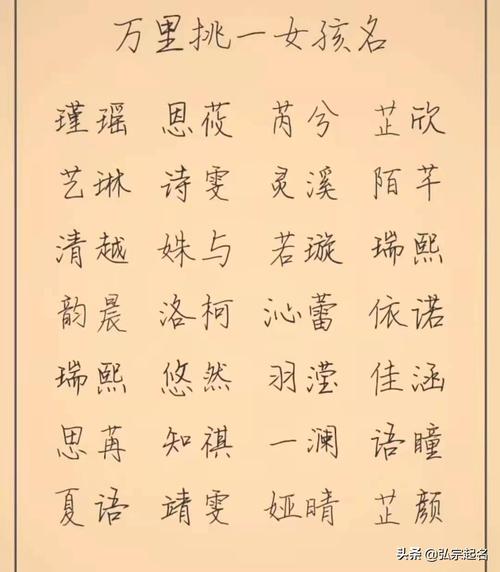 万里挑一女孩名
瑾瑶 恩莜 芮兮 芷欣
艺琳 诗雯 灵溪 陌芊
清越 姝与 若璇 瑞熙
韵晨 洛柯 沁蕾 依诺
瑞熙 悠然 羽滢 佳涵
思苒 知祺 一澜 语瞳
夏语 靖雯 娅晴 芷颜
头条 @弘宗起名